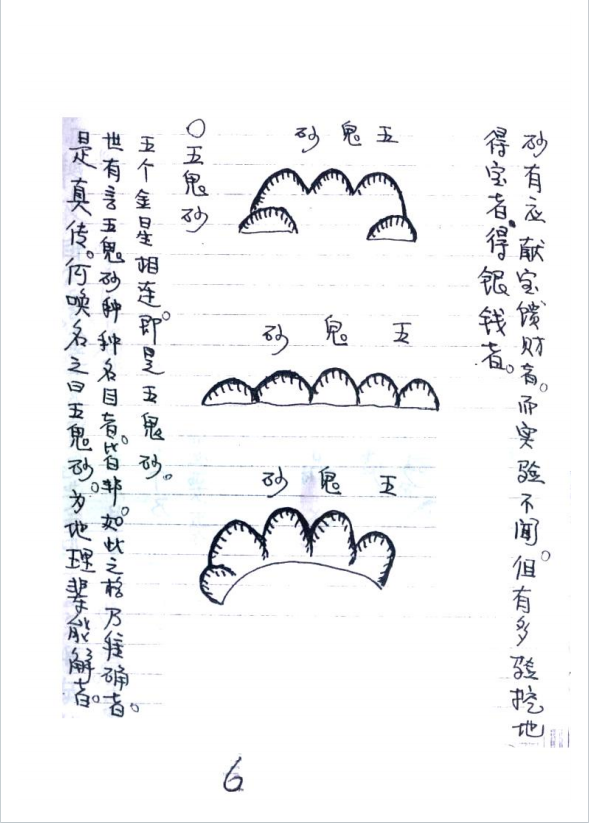 砂有应献宝馈财者。而实验不闻。但有多验挖地
得宝者。得银钱者。
五鬼砂
五鬼砂
五鬼砂
○五鬼砂
五个金星相连。即是五鬼砂。
也有言五鬼砂种种名目者。皆非。如此之格乃准确者。
是真传。何唤名之曰五鬼砂。为地理辈能解者。
6